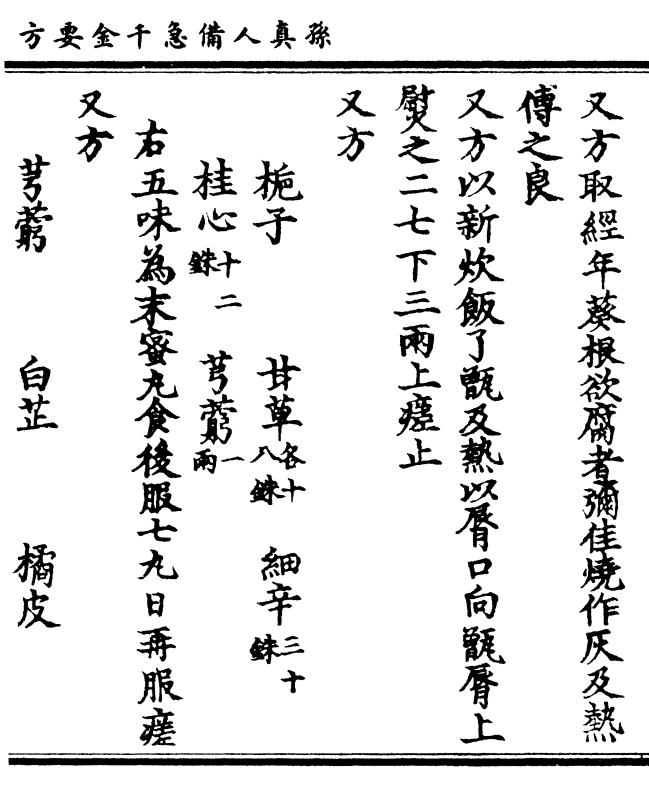 孫真人備急千金要方
又方取經年葵根欲腐者彌佳燒作灰及熱
傅之良
又方以新炊飯了甑及熱以脣口向甑脣上
熨之二七下三兩上瘥止
又方
梔子 甘草各十八銖 細辛三十銖
桂心十二銖 芎藭一兩
右五味為末蜜丸食後服七丸日再服瘥
又方
芎藭 白芷 橘皮